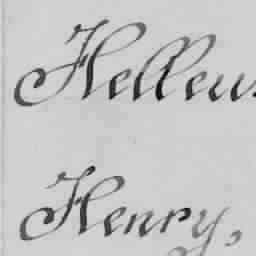 Hellen
Henry,